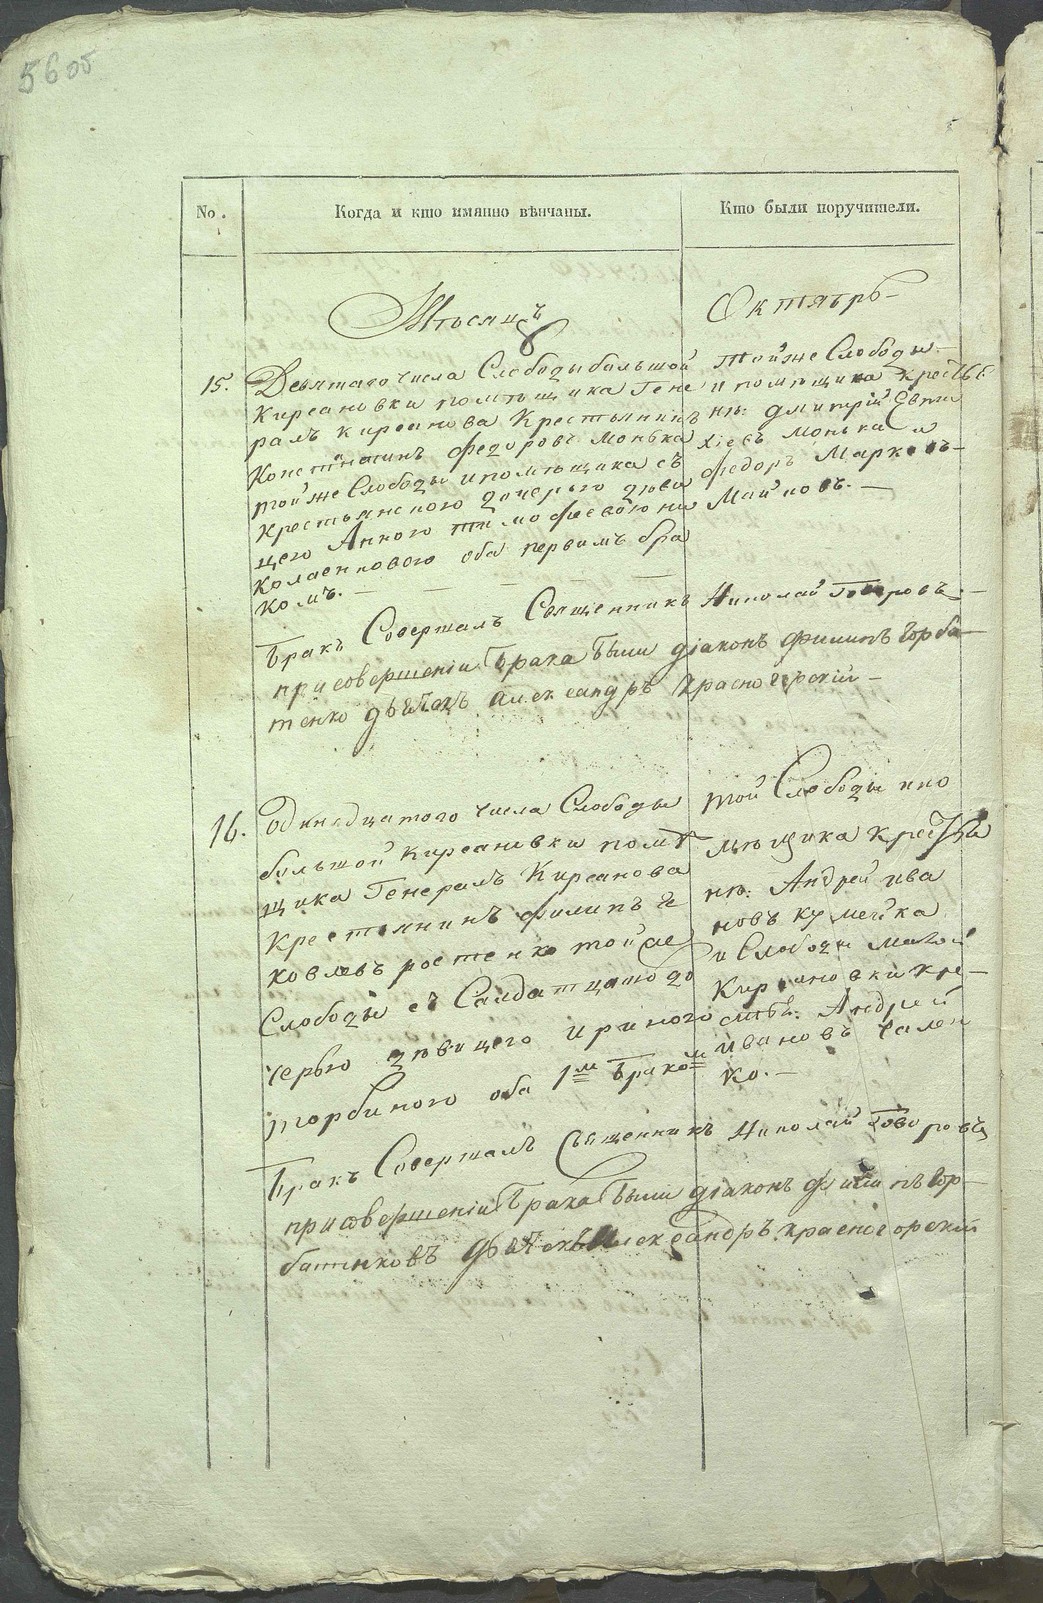 56 об
No.
Когда и кто имянно вѣнчаны.
Кто были поручители.
Мѣсяцъ
Октябрь
15.
Девятаго числа Слободы большой
Кирсановки помѣщика Гене
ралъ Кирсанова Крестьянинъ
Констянтинъ Федоровъ Монька
тойже Слободы и помѣщика съ
Крестьянскою дочерью дѣви
цею Анною Тимофеевою Ни
колаенковою оба первымъ бра
комъ.
тойже Слободы
и помѣщика
не: Дмитрій
Монька и
Федоръ Марковъ
Майповъ.
Бракъ Совершалъ Священникъ Николай Говоровъ
при совершеніи Брака Были діаконъ Филипъ Горба
тенко дьячекъ Александръ Красногорскій
16.
Одинадцатого числа Слободы
большой Кирсановки помѣ
щика Генералъ Кирсанова
Крестянинъ Филипъ Я
ковлевъ ростенко тойже
Слободы съ Салдатцкою до
черью дѣвицею Ириною
торбиною оба 1м Бракомъ
той Слободы и по
мѣщика
не: Андрей Ива
новъ Кумейка
и Слободы Малой
Кирсановки кре
Андрей
Ивановъ Гален
ко.
Бракъ Совершалъ Священникъ Николай Говоровъ
при совершеніи Брака Были діаконъ Филипъ Гор
батенковъ дьячекъ Александръ Красногорскій